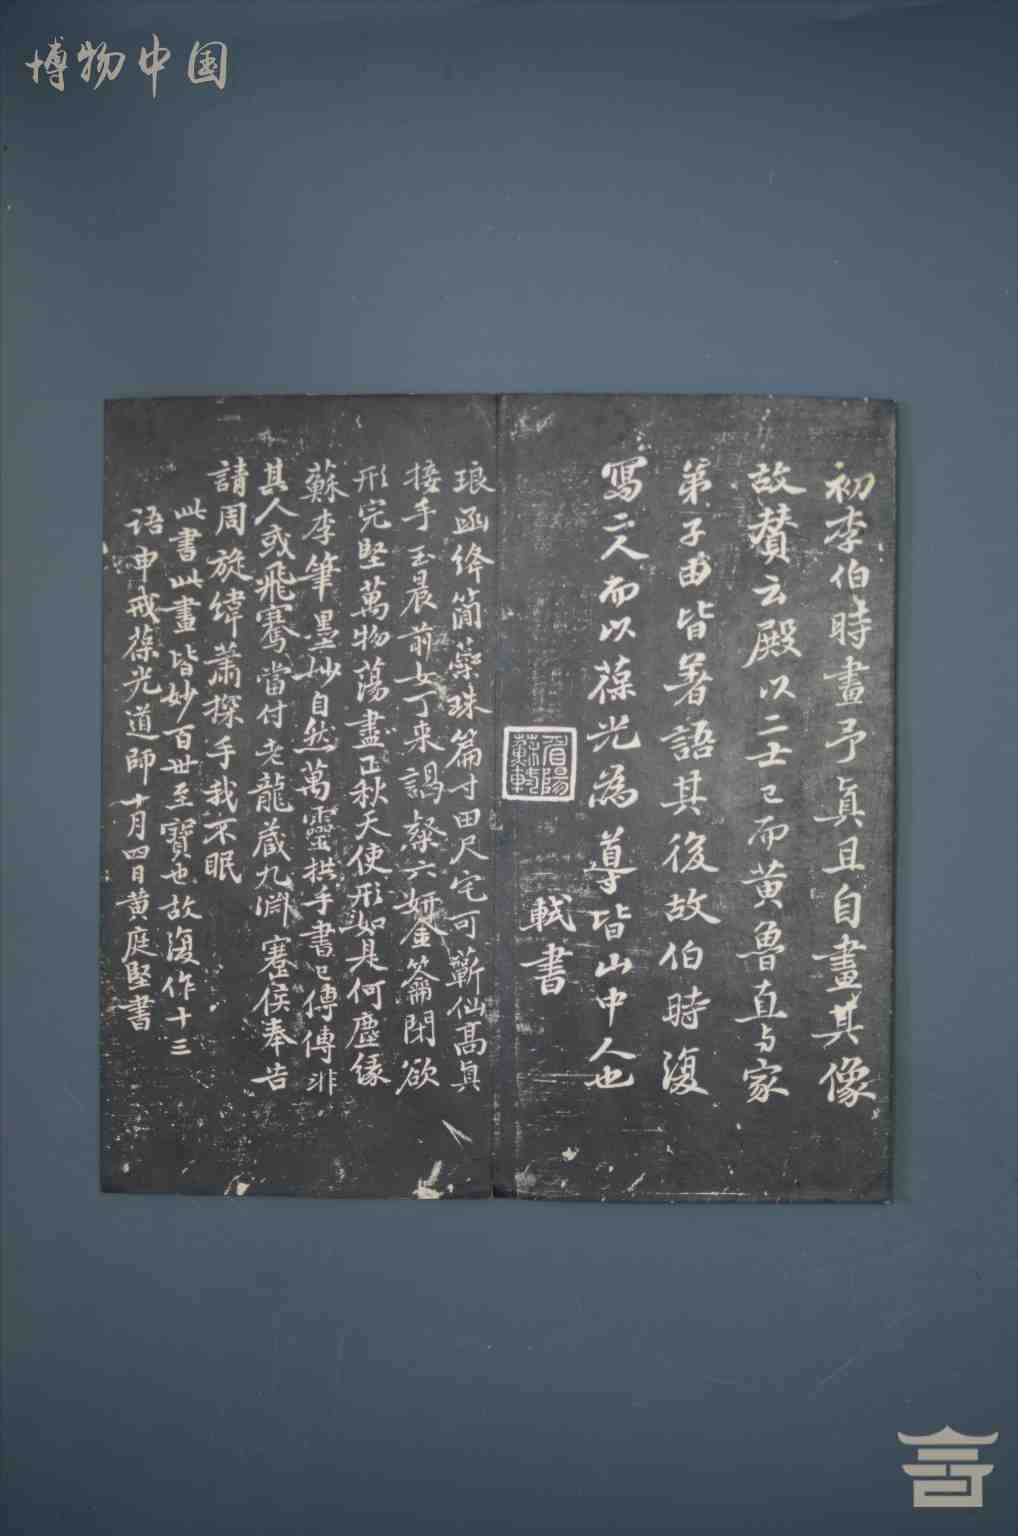 博物中国
初李伯時畫予真且自畫其像
故贊云殿以二士已而黄魯直与家
弟子由皆著語其後故伯時復
寫二人而以葆光為導皆山中人也
軾書
眉陽蘇軾
琅函絳簡蘂珠篇寸田尺宅可蘄仙高真
接手玉晨前女丁来謁粲六妍金籥閉欲
形完堅萬物蕩盡正秋天使形如是何塵緣
蘇李筆墨妙自然萬靈拱手書已傳傳非
其人或飛騫當付老龍蔵九淵蹇侯奉告
請周旋緯蕭探手我不眠
此書此畫皆妙百世至寶也故復作十三
语申戒葆光道師十月四日黄庭堅書